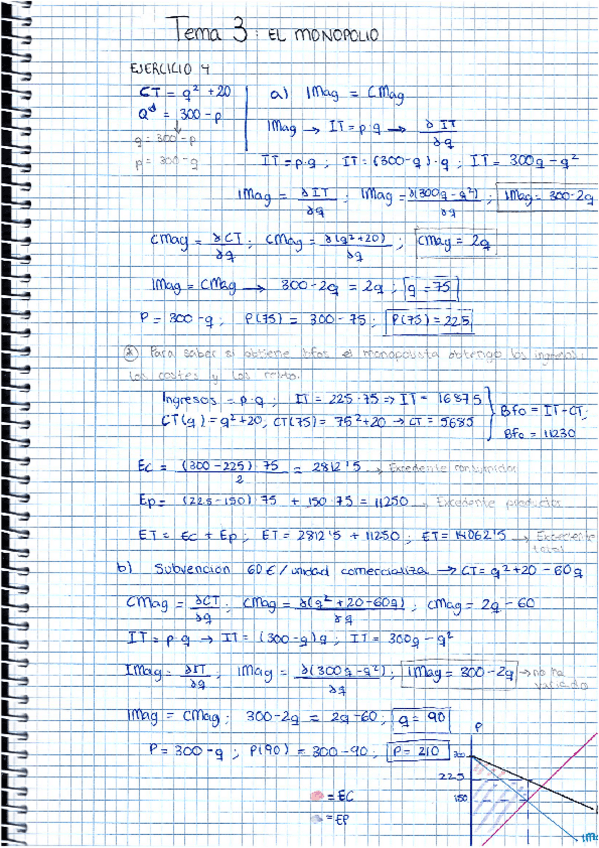 Tema 3: EL MONOPOLIO
EJERCICIO 4
CT = q² + 20
Qᵈ = 300 - p
q = 300 - p
p = 300 - q
a) IMag = CMag
IMag → IT = p·q → ∂IT/∂q
IT = p·q ; IT = (300-q)·q ; IT = 300q - q²
IMag = ∂IT/∂q ; IMag = ∂(300q - q²)/∂q ; IMag = 300-2q
CMag = ∂CT/∂q ; CMag = ∂(q²+20)/∂q ; CMag = 2q
IMag = CMag → 300-2q = 2q ; q = 75
P = 300-q ; P(75) = 300-75 ; P(75) = 225
Para saber si obtiene bfos el monopolista obtengo los ingresos,
los costes y los resto.
Ingresos = p·q ; IT = 225·75 ⇒ IT = 16875
CT(q) = q²+20, CT(75) = 75²+20 → CT = 5685
Bfo = IT-CT;
Bfo = 11230
Ec = (300-225)·75/2 = 2812'5 → Excedente consumidor
Ep = (225-150)·75 + 150·75 = 11250 → Excedente productor
ET = Ec + Ep ; ET = 2812'5 + 11250 ; ET = 14062'5 → Excedente total
b) Subvención 60€/unidad comercializa → CT = q²+20-60q
CMag = ∂CT/∂q ; CMag = ∂(q²+20-60q)/∂q ; CMag = 2q-60
IT = p·q → IT = (300-q)q ; IT = 300q - q²
IMag = ∂IT/∂q ; IMag = ∂(300q-q²)/∂q ; IMag = 300-2q → no ha variado
IMag = CMag ; 300-2q = 2q-60 ; q = 90
P = 300-q ; P(90) = 300-90 ; P = 210
P
300
225
150
= EC
= EP